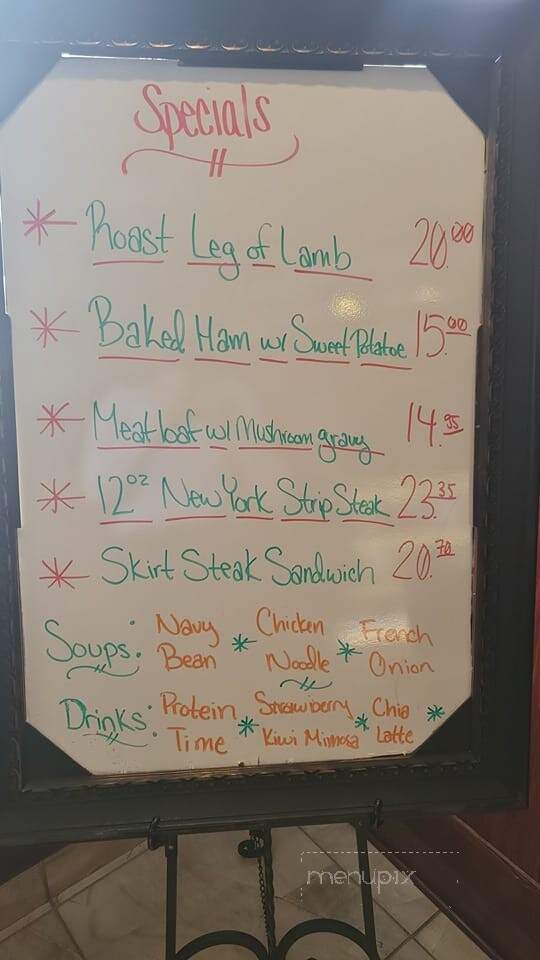 Specials
* Roast Leg of Lamb 20.00
* Baked Ham w/ Sweet Potatoe 15.00
* Meatloaf w/ Mushroom gravy 14.95
* 12oz New York Strip Steak 23.35
* Skirt Steak Sandwich 20.70
Soups: Navy Bean * Chicken Noodle * French Onion
Drinks: Protein Time * Strawberry Kiwi Mimosa * Chia Latte *
menupix